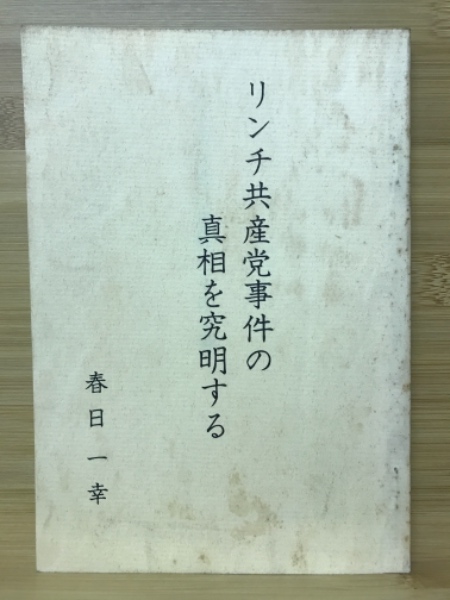 リンチ共産党事件の
真相を究明する
春日一幸